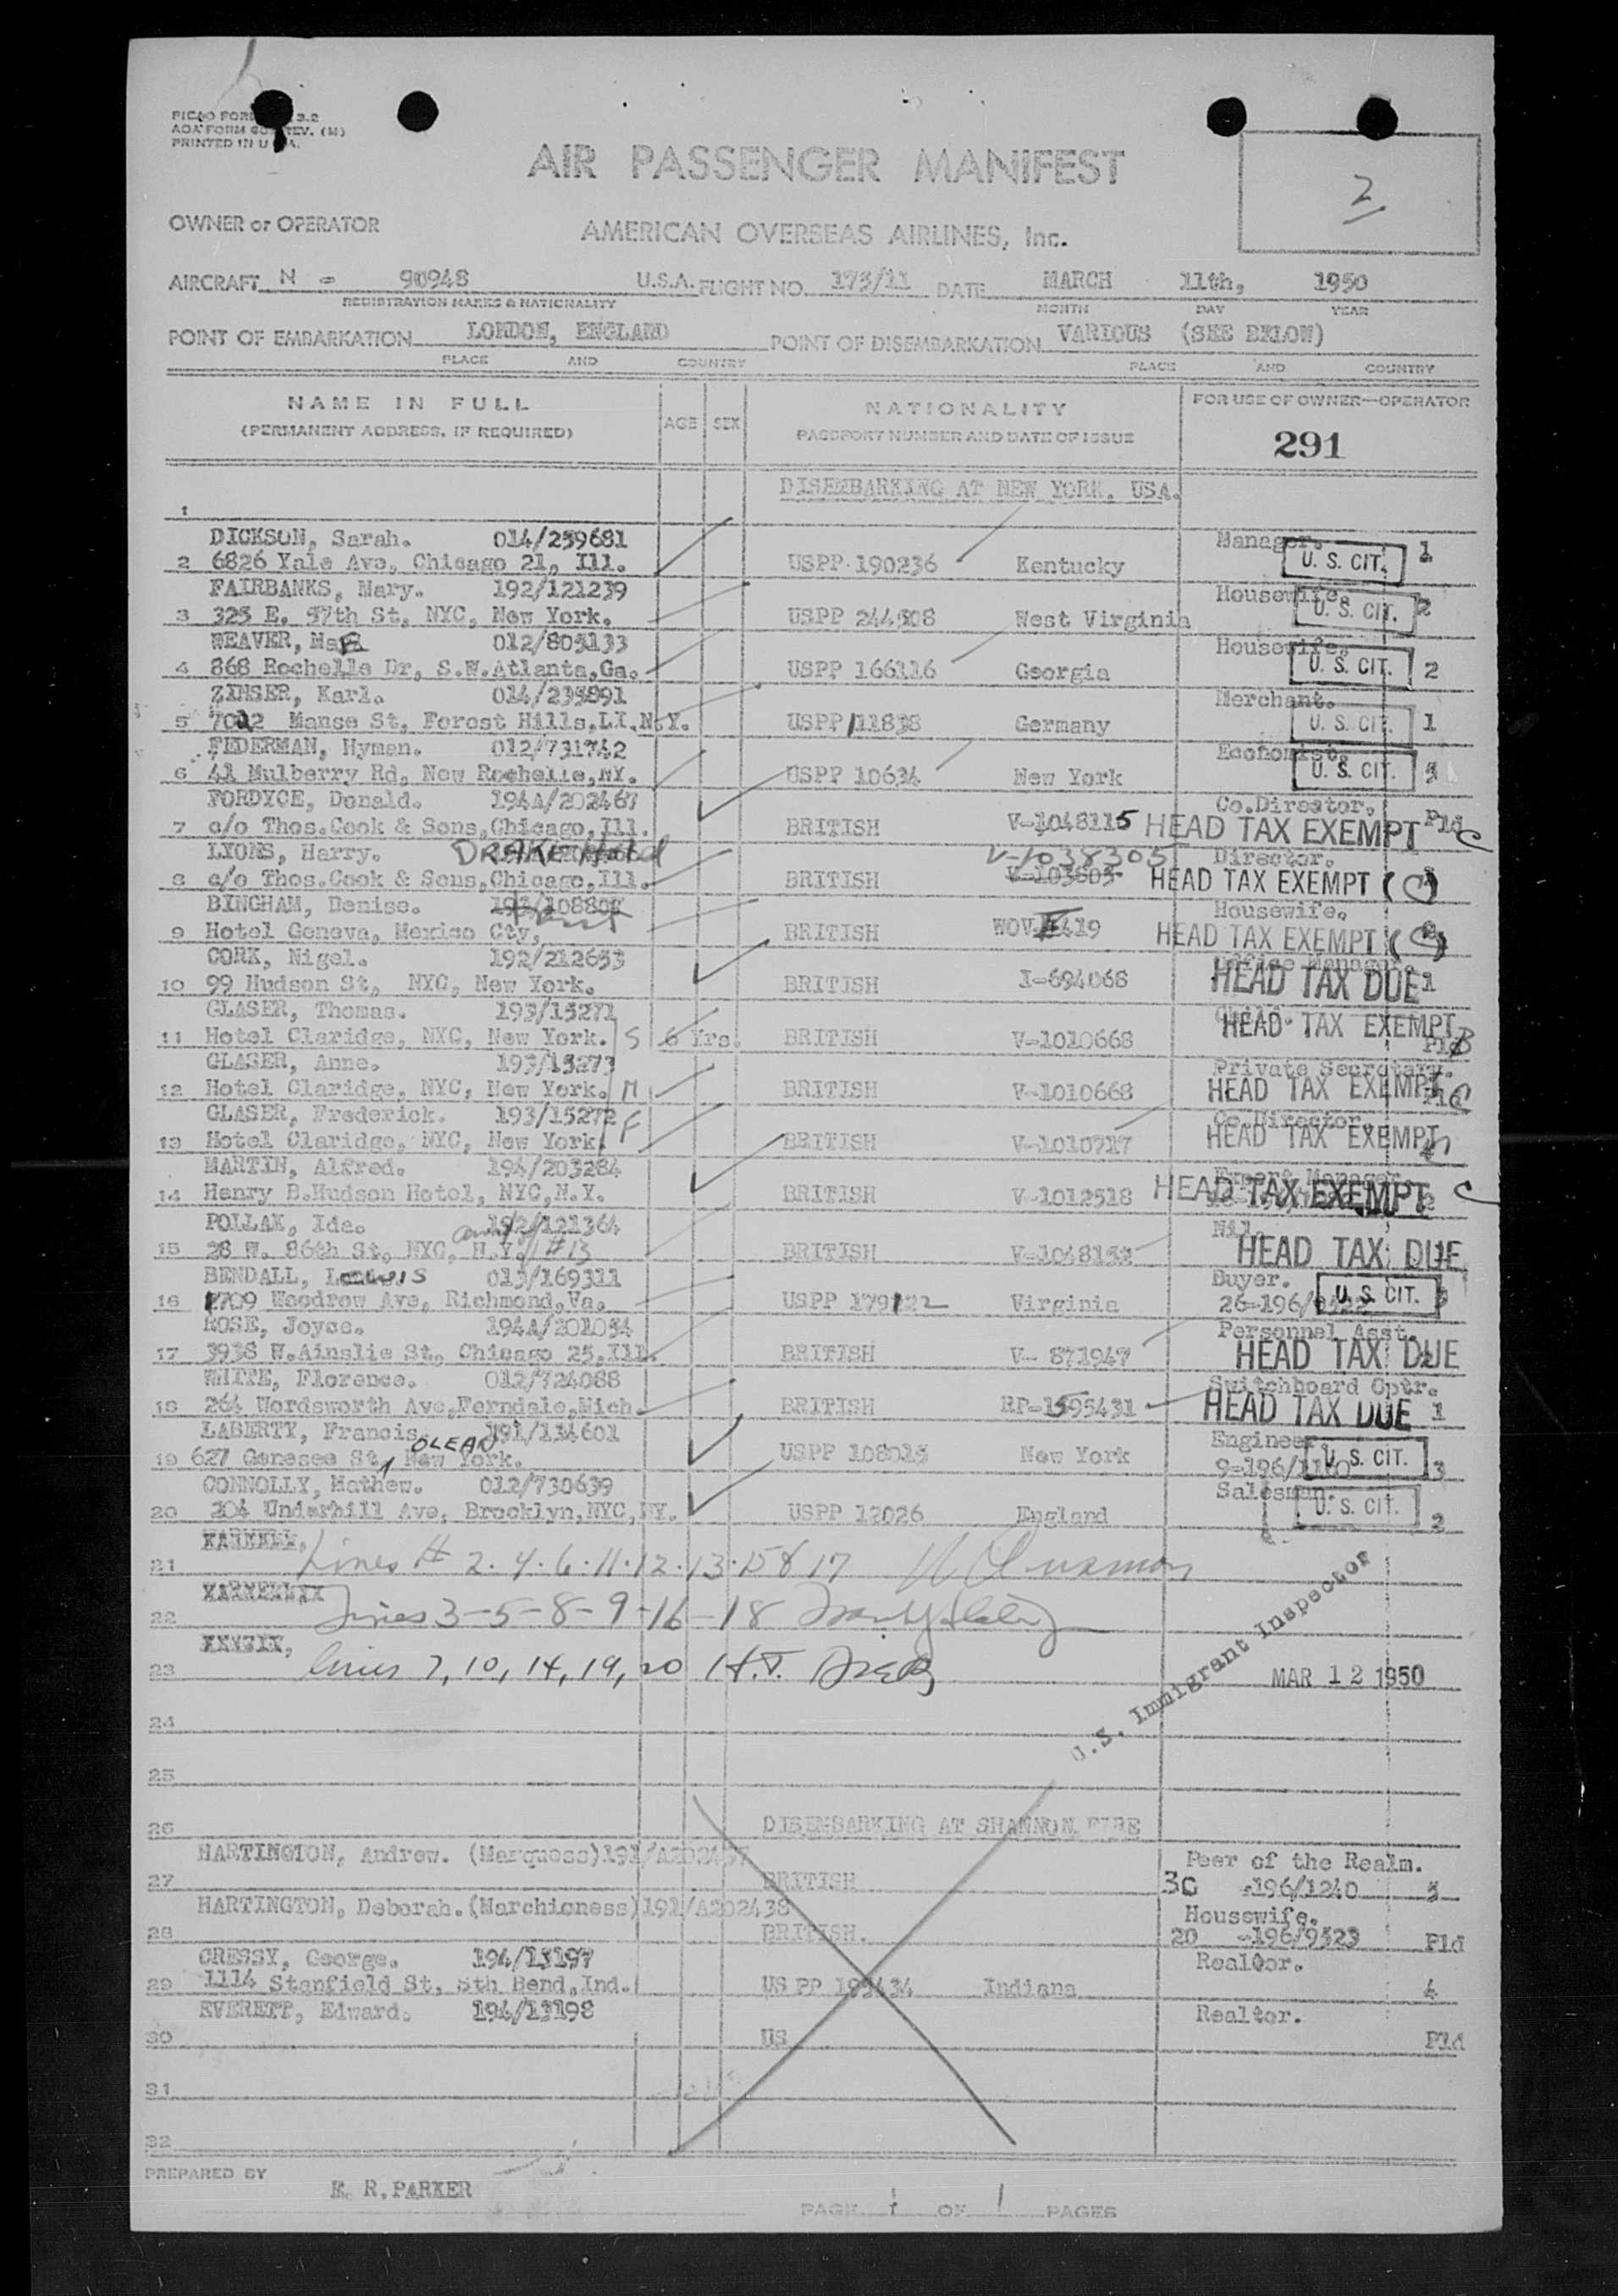 PICAO FORM 3.2
AOA FORM REV. (M)
PRINTED IN U.S.A.
AIR PASSENGER MANIFEST
2
OWNER or OPERATOR
AMERICAN OVERSEAS AIRLINES, Inc.
AIRCRAFT N - 90948 U.S.A. FLIGHT NO. 173/11 DATE MARCH 11th, 1950
REGISTRATION MARKS & NATIONALITY MONTH DAY YEAR
POINT OF EMBARKATION LONDON, ENGLAND POINT OF DISEMBARKATION VARIOUS (SEE BELOW)
PLACE AND COUNTRY PLACE AND COUNTRY
NAME IN FULL AGE SEX NATIONALITY FOR USE OF OWNER—OPERATOR
(PERMANENT ADDRESS, IF REQUIRED) PASSPORT NUMBER AND DATE OF ISSUE 291
DISEMBARKING AT NEW YORK, USA.
1
DICKSON, Sarah. 014/259681 Manager. 1
2 6826 Yale Ave, Chicago 21, Ill. USPP 190236 Kentucky U. S. CIT.
FAIRBANKS, Mary. 192/121239 Housewife. 2
3 325 E. 57th St, NYC, New York. USPP 244508 West Virginia U. S. CIT.
WEAVER, 012/805133 Housewife.
4 868 Rochelle Dr, S.W.Atlanta,Ga. USPP 166116 Georgia U. S. CIT. 2
ZINSER, Karl. 014/235891 Merchant.
5 Manse St, Forest Hills,LI,N.Y. USPP 11838 Germany U. S. CIT. 1
FEDERMAN, Hyman. 012/731742 Economist.
6 41 Mulberry Rd, New Rochelle,NY. USPP 10634 New York U. S. CIT.
FORDYCE, Donald. 194A/202467 Co.Director. Pld
7 c/o Thos.Cook & Sons,Chicago,Ill. BRITISH V-1048115 HEAD TAX EXEMPT C
LYONS, Harry. DRAKE Hotel V-1038305 Director.
8 c/o Thos.Cook & Sons,Chicago,Ill. BRITISH V-103803 HEAD TAX EXEMPT (C)
BINGHAM, Denise. Housewife.
9 Hotel Geneva, Mexico Cty, BRITISH HEAD TAX EXEMPT (C)
CORK, Nigel. 192/212653 Office Manager.
10 99 Hudson St, NYC, New York. BRITISH I-694068 HEAD TAX DUE 1
GLASER, Thomas. 193/15271
11 Hotel Claridge, NYC, New York. S 6 Yrs. BRITISH V-1010668 HEAD TAX EXEMPT
GLASER, Anne. 193/15273 Private Secretary.
12 Hotel Claridge, NYC, New York. M BRITISH V-1010668 HEAD TAX EXEMPT
GLASER, Frederick. 193/15272 Co.Director.
13 Hotel Claridge, NYC, New York. F BRITISH V-1010717 HEAD TAX EXEMPT
MARTIN, Alfred. 194/203284 Export Manager.
14 Henry B.Hudson Hotel, NYC,N.Y. BRITISH V-1012518 HEAD TAX EXEMPT C
POLLAK, Ida. 192/121364 Nil.
15 28 W. 86th St, NYC, N.Y. # 13 BRITISH HEAD TAX DUE
BENDALL, 013/169311 Buyer.
16 Woodrow Ave, Richmond,Va. USPP 179122 Virginia U. S. CIT.
ROSE, Joyce. 194A/201054 Personnel Asst.
17 3938 W.Ainslie St, Chicago 25.Ill. BRITISH V- 871947 HEAD TAX DUE
WHITE, Florence. 012/724088 Switchboard Optr.
18 264 Wordsworth Ave,Ferndale,Mich BRITISH RP-1595431 HEAD TAX DUE 1
LABERTY, Francis. 191/134601 Engineer
19 627 Genesee St, OLEAN New York. USPP 108015 New York U. S. CIT. 3
CONNOLLY, Mathew. 012/730639 Salesman.
20 204 Underhill Ave, Brooklyn,NYC,NY. USPP 12026 England U. S. CIT. 2
21 Lines # 2.4.6.11.12.13.15 & 17
22 Lines 3-5-8-9-16-18
23 lines 7, 10, 14, 19, 20
U.S. Immigrant Inspector
MAR 12 1950
24
25
26 DISEMBARKING AT SHANNON EIRE
HARTINGTON, Andrew. (Marquess) Peer of the Realm.
27 BRITISH 30 -196/1240
HARTINGTON, Deborah. (Marchioness) 191/A202438 Housewife.
28 BRITISH. 20 -196/9523 Pld
CRESSY, George. 194/13197 Realtor.
29 1114 Stanfield St, Sth Bend,Ind. US PP Indiana 4
EVERETT, Edward. 194/13198 Realtor.
30 US Pld
31
32
PREPARED BY
E. R. PARKER
PAGE 1 OF 1 PAGES